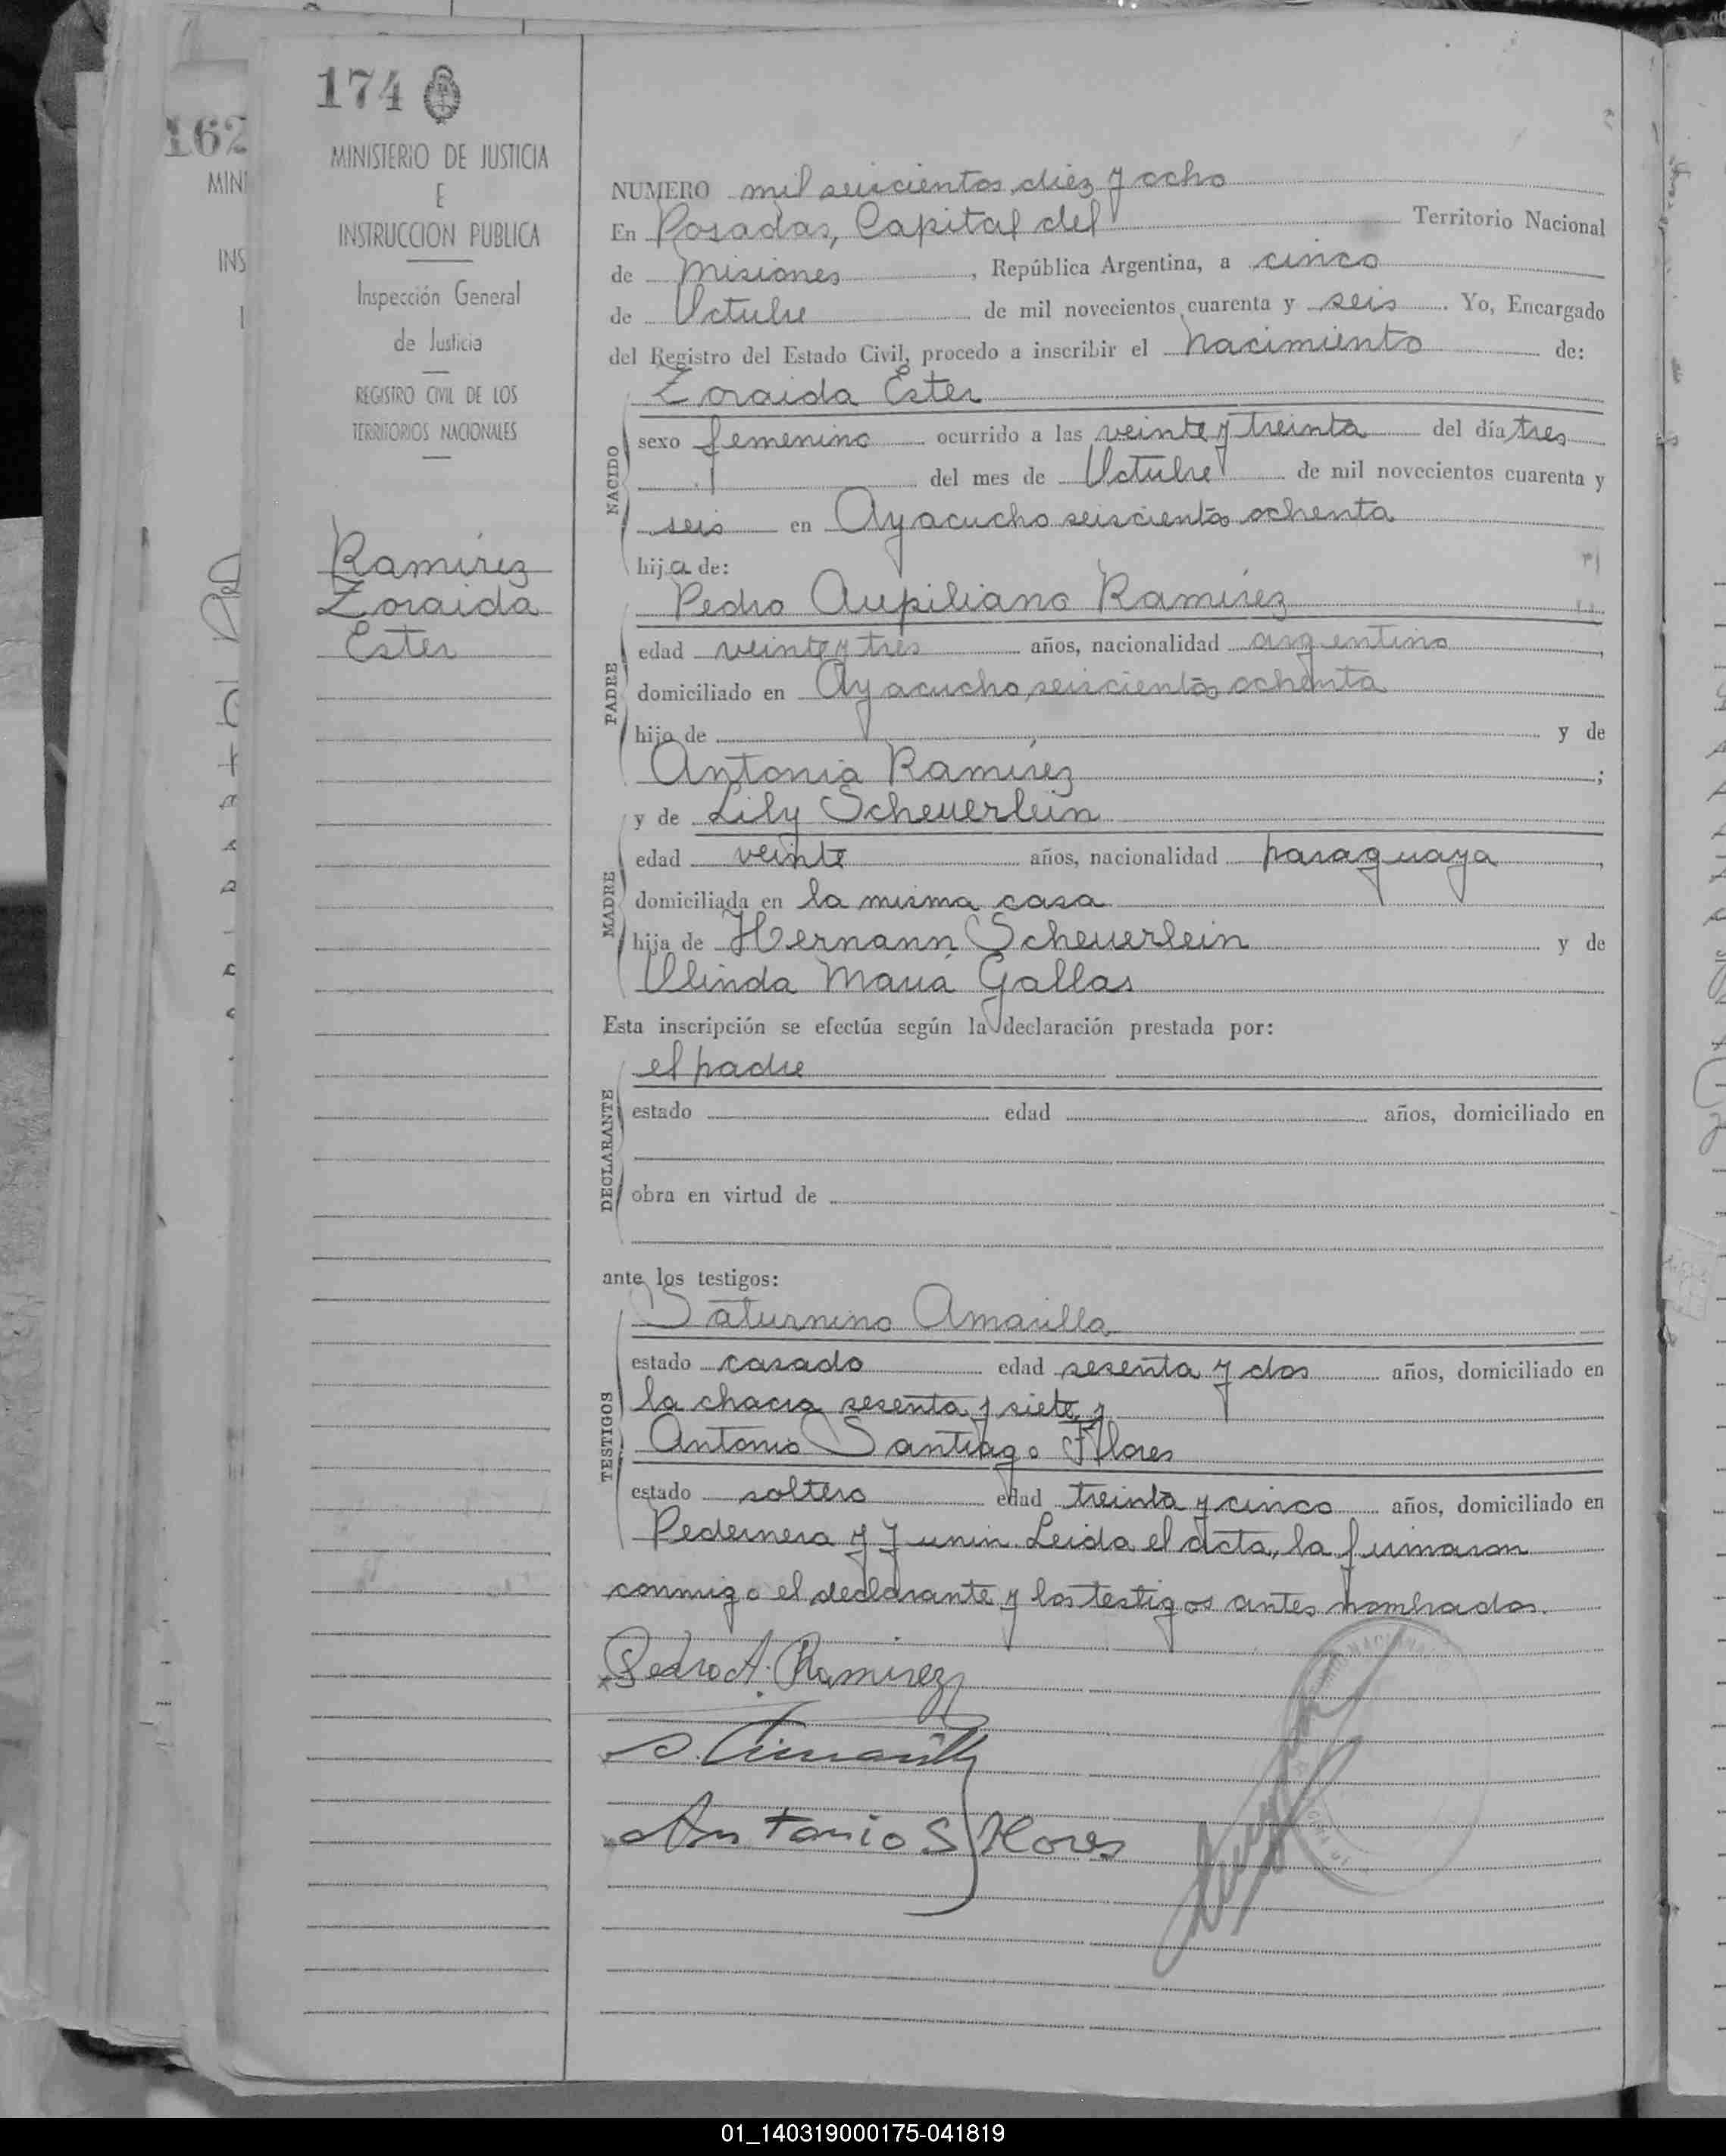 174
MINISTERIO DE JUSTICIA
E
INSTRUCCION PUBLICA
Inspección General
de Justicia
REGISTRO CIVIL DE LOS
TERRITORIOS NACIONALES
Ramírez
Zoraida
Ester
162
MINI
INS
NUMERO mil seiscientos diez y ocho
En Posadas, Capital del Territorio Nacional
de Misiones, República Argentina, a cinco
de Octubre de mil novecientos cuarenta y seis. Yo, Encargado
del Registro del Estado Civil, procedo a inscribir el nacimiento de:
NACIDO
Zoraida Ester
sexo femenino ocurrido a las veinte y treinta del día tres
del mes de Octubre de mil novecientos cuarenta y
seis en Ayacucho seiscientos ochenta
hija de:
PADRE
Pedro Aupiliano Ramírez
edad veinte y tres años, nacionalidad argentino,
domiciliado en Ayacucho, seiscientos ochenta
hijo de y de
Antonia Ramírez;
MADRE
y de Lily Scheuerlein
edad veinte años, nacionalidad paraguaya,
domiciliada en la misma casa
hija de Hernann Scheuerlein y de
Olinda María Gallas
Esta inscripción se efectúa según la declaración prestada por:
DECLARANTE
el padre
estado edad años, domiciliado en
obra en virtud de
ante los testigos:
TESTIGOS
Saturnino Amarilla
estado casado edad sesenta y dos años, domiciliado en
la chacra sesenta y siete y
Antonio Santiago Flores
estado soltero edad treinta y cinco años, domiciliado en
Pedernera y Junin. Leida el acta, la firmaron
conmigo el declarante y los testigos antes nombrados.
Pedro A. Ramirez
S. Amarilla
Antonio S Flores
01_140319000175-041819